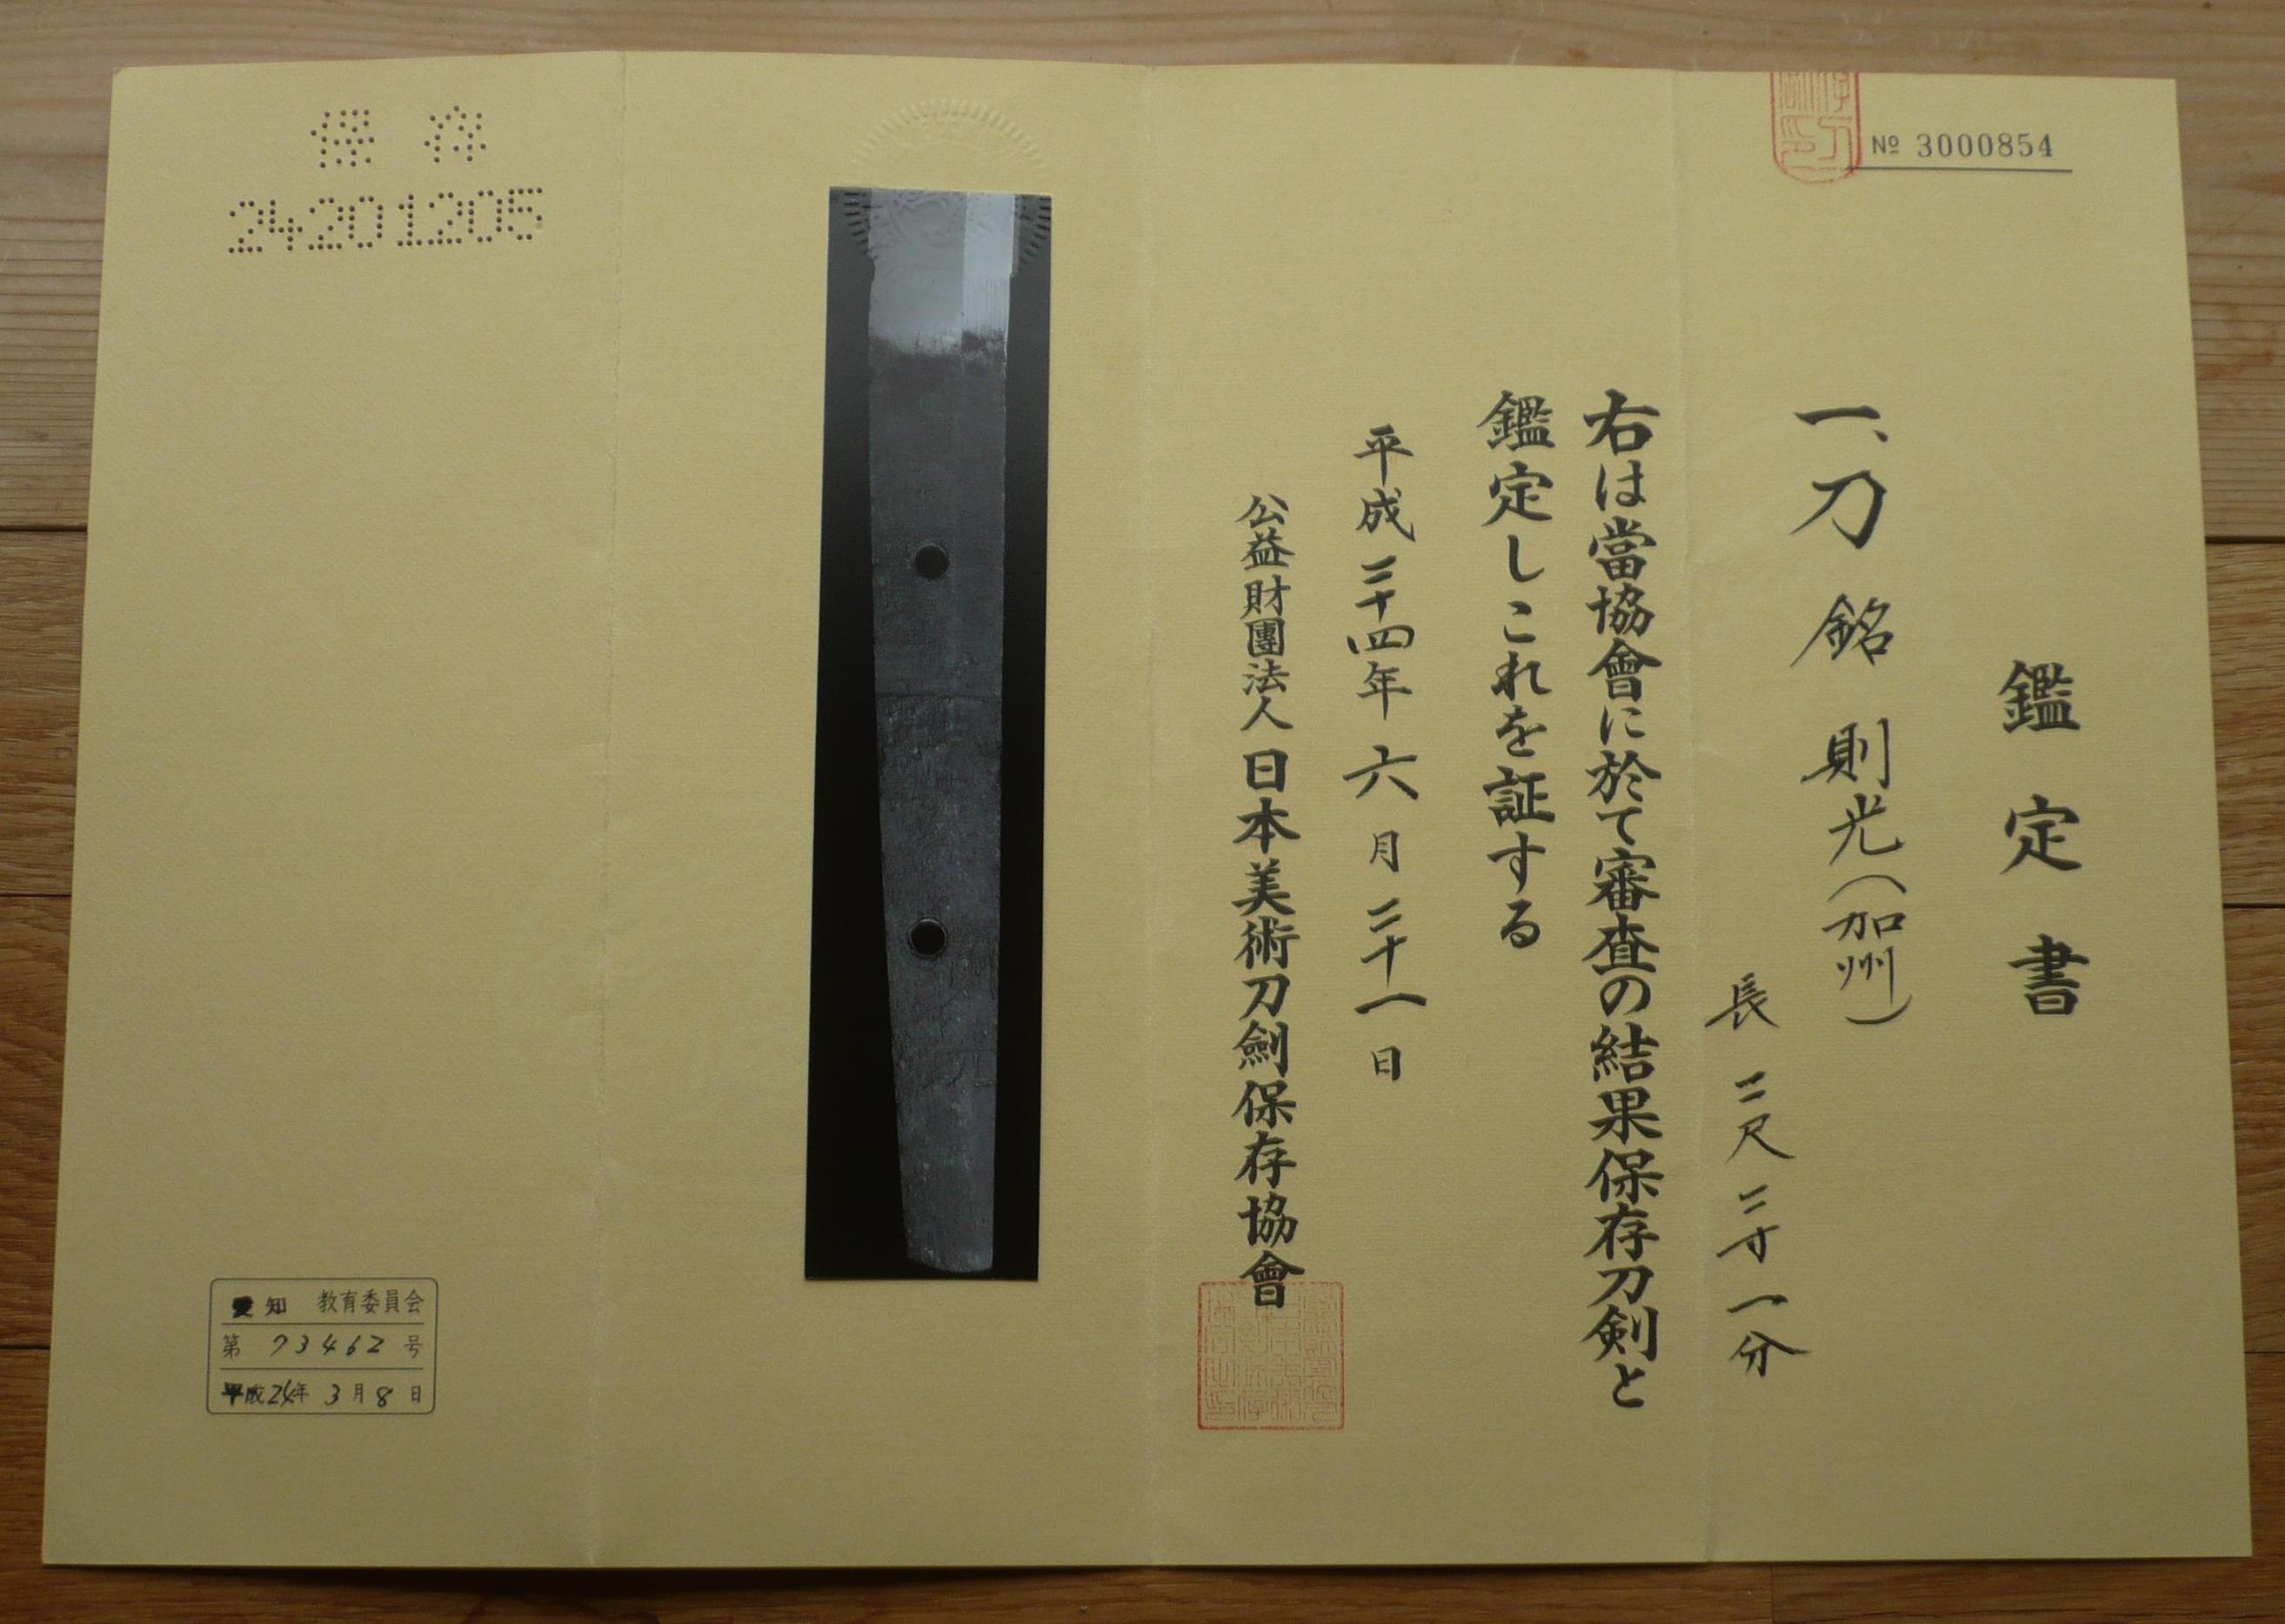 № 3000854
鑑定書
一、刀 銘 則光(加州)
長 二尺二寸一分
右は當協會に於て審査の結果保存刀剣と
鑑定しこれを証する
平成二十四年六月二十一日
公益財團法人日本美術刀劍保存協會
保存
24201205
愛知 教育委員会
第 73462 号
平成24年 3月 8日